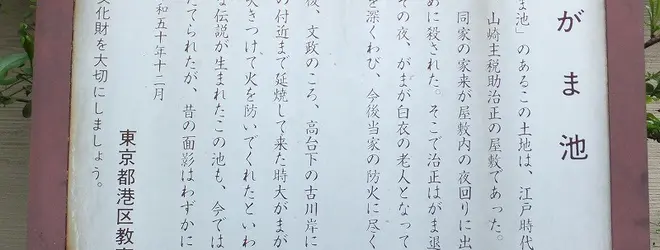 がま池
ま池」のあるこの土地は、江戸時代
山崎主税助治正の屋敷であった。
同家の家来が屋敷内の夜回りに出
めに殺された。そこで治正はがま退
その夜、がまが白衣の老人となって
を深くわび、今後当家の防火に尽く
後、文政のころ、高台下の古川岸に
の付近まで延焼して来た時大がまが
吹きつけて火を防いでくれたといわ
な伝説が生まれたこの池も、今では
たてられたが、昔の面影はわずかに
和五十年十二月
文化財を大切にしましょう。
東京都港区教